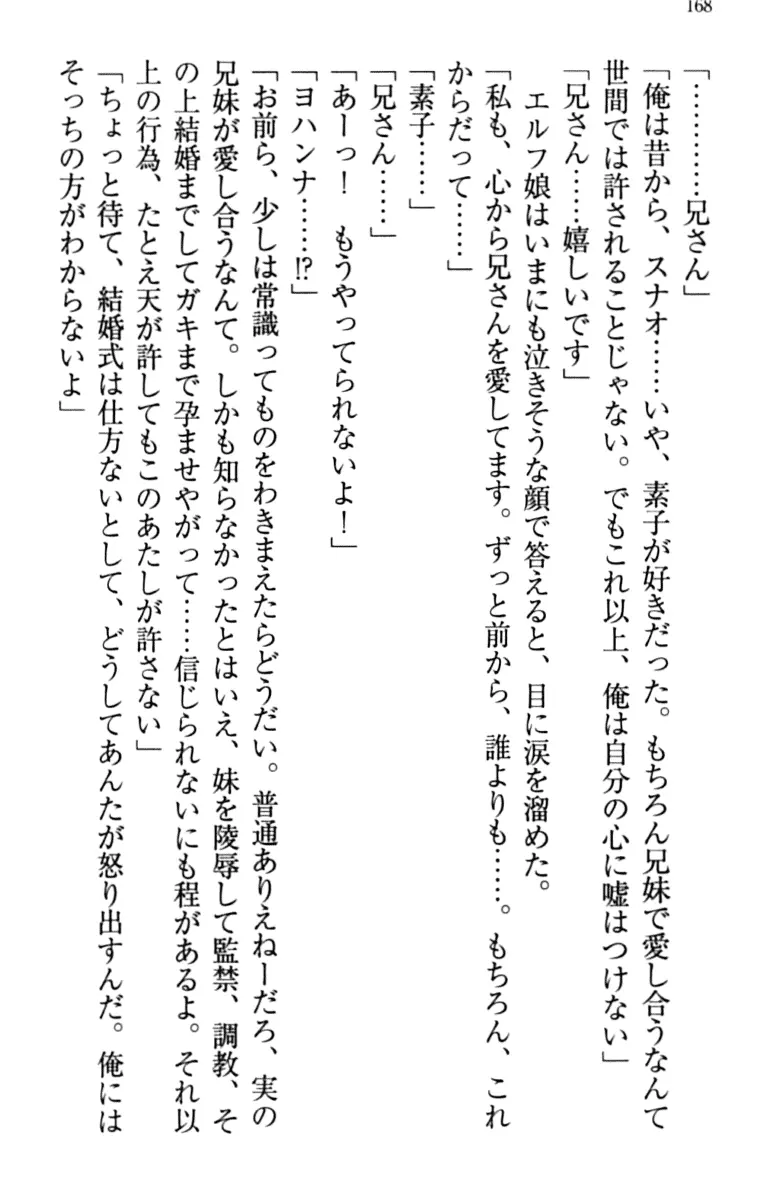 168
「…………兄さん」
「俺は昔から、スナオ……いや、素子が好きだった。もちろん兄妹で愛し合うなんて
世間では許されることじゃない。でもこれ以上、俺は自分の心に嘘はつけない」
「兄さん……嬉しいです」
　エルフ娘はいまにも泣きそうな顔で答えると、目に涙を溜めた。
「私も、心から兄さんを愛してます。ずっと前から、誰よりも……。もちろん、これ
からだって……」
「素子……」
「兄さん……」
「あーっ！　もうやってられないよ！」
「ヨハンナ……!?」
「お前ら、少しは常識ってものをわきまえたらどうだい。普通ありえねーだろ、実の
兄妹が愛し合うなんて。しかも知らなかったとはいえ、妹を陵辱して監禁、調教、そ
の上結婚までしてガキまで孕ませやがって……信じられないにも程があるよ。それ以
上の行為、たとえ天が許してもこのあたしが許さない」
「ちょっと待て、結婚式は仕方ないとして、どうしてあんたが怒り出すんだ。俺には
そっちの方がわからないよ」